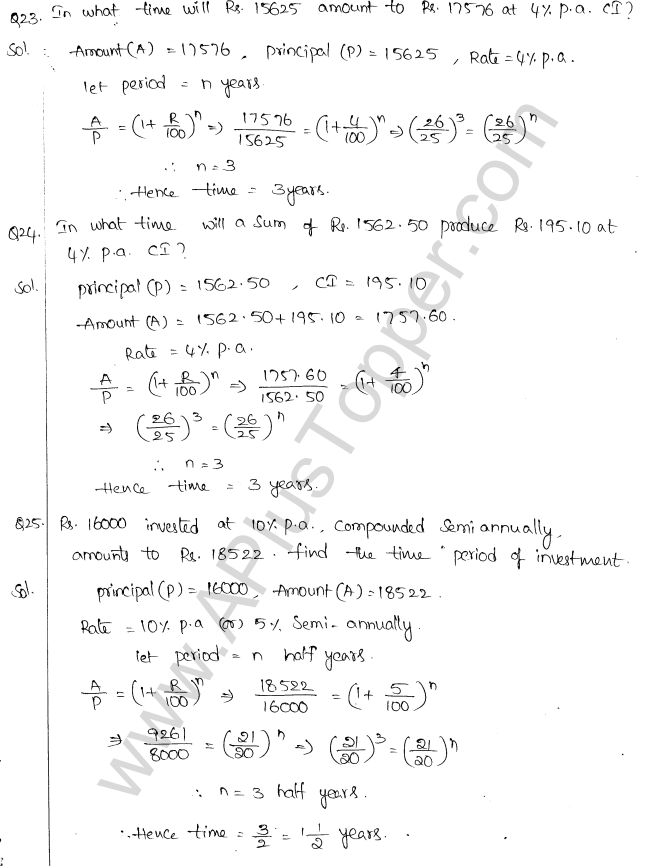 Q23. In what time will Rs. 15625 amount to Rs. 17576 at 4% p.a. CI?
Sol : Amount(A) = 17576, principal (P) = 15625, Rate = 4% p.a.
let period = n years.
A/P = (1+ R/100)^n => 17576/15625 = (1+ 4/100)^n => (26/25)^3 = (26/25)^n
∴ n = 3
∴ Hence time = 3 years.
Q24. In what time will a Sum of Rs. 1562.50 produce Rs. 195.10 at
4% p.a. CI?
Sol. principal (P) = 1562.50, CI = 195.10
Amount (A) = 1562.50 + 195.10 = 1757.60.
Rate = 4% p.a.
A/P = (1+ R/100)^n => 1757.60/1562.50 = (1+ 4/100)^n
=> (26/25)^3 = (26/25)^n
∴ n = 3
Hence time = 3 years.
Q25. Rs. 16000 invested at 10% p.a., compounded semi annually,
amounts to Rs. 18522. find the time period of investment.
Sol. principal (P) = 16000, Amount (A) = 18522.
Rate = 10% p.a (or) 5% Semi-annually.
let period = n half years.
A/P = (1+ R/100)^n => 18522/16000 = (1+ 5/100)^n
=> 9261/8000 = (21/20)^n => (21/20)^3 = (21/20)^n
∴ n = 3 half years.
∴ Hence time = 3/2 = 1 1/2 years.
www.APlusTopper.com